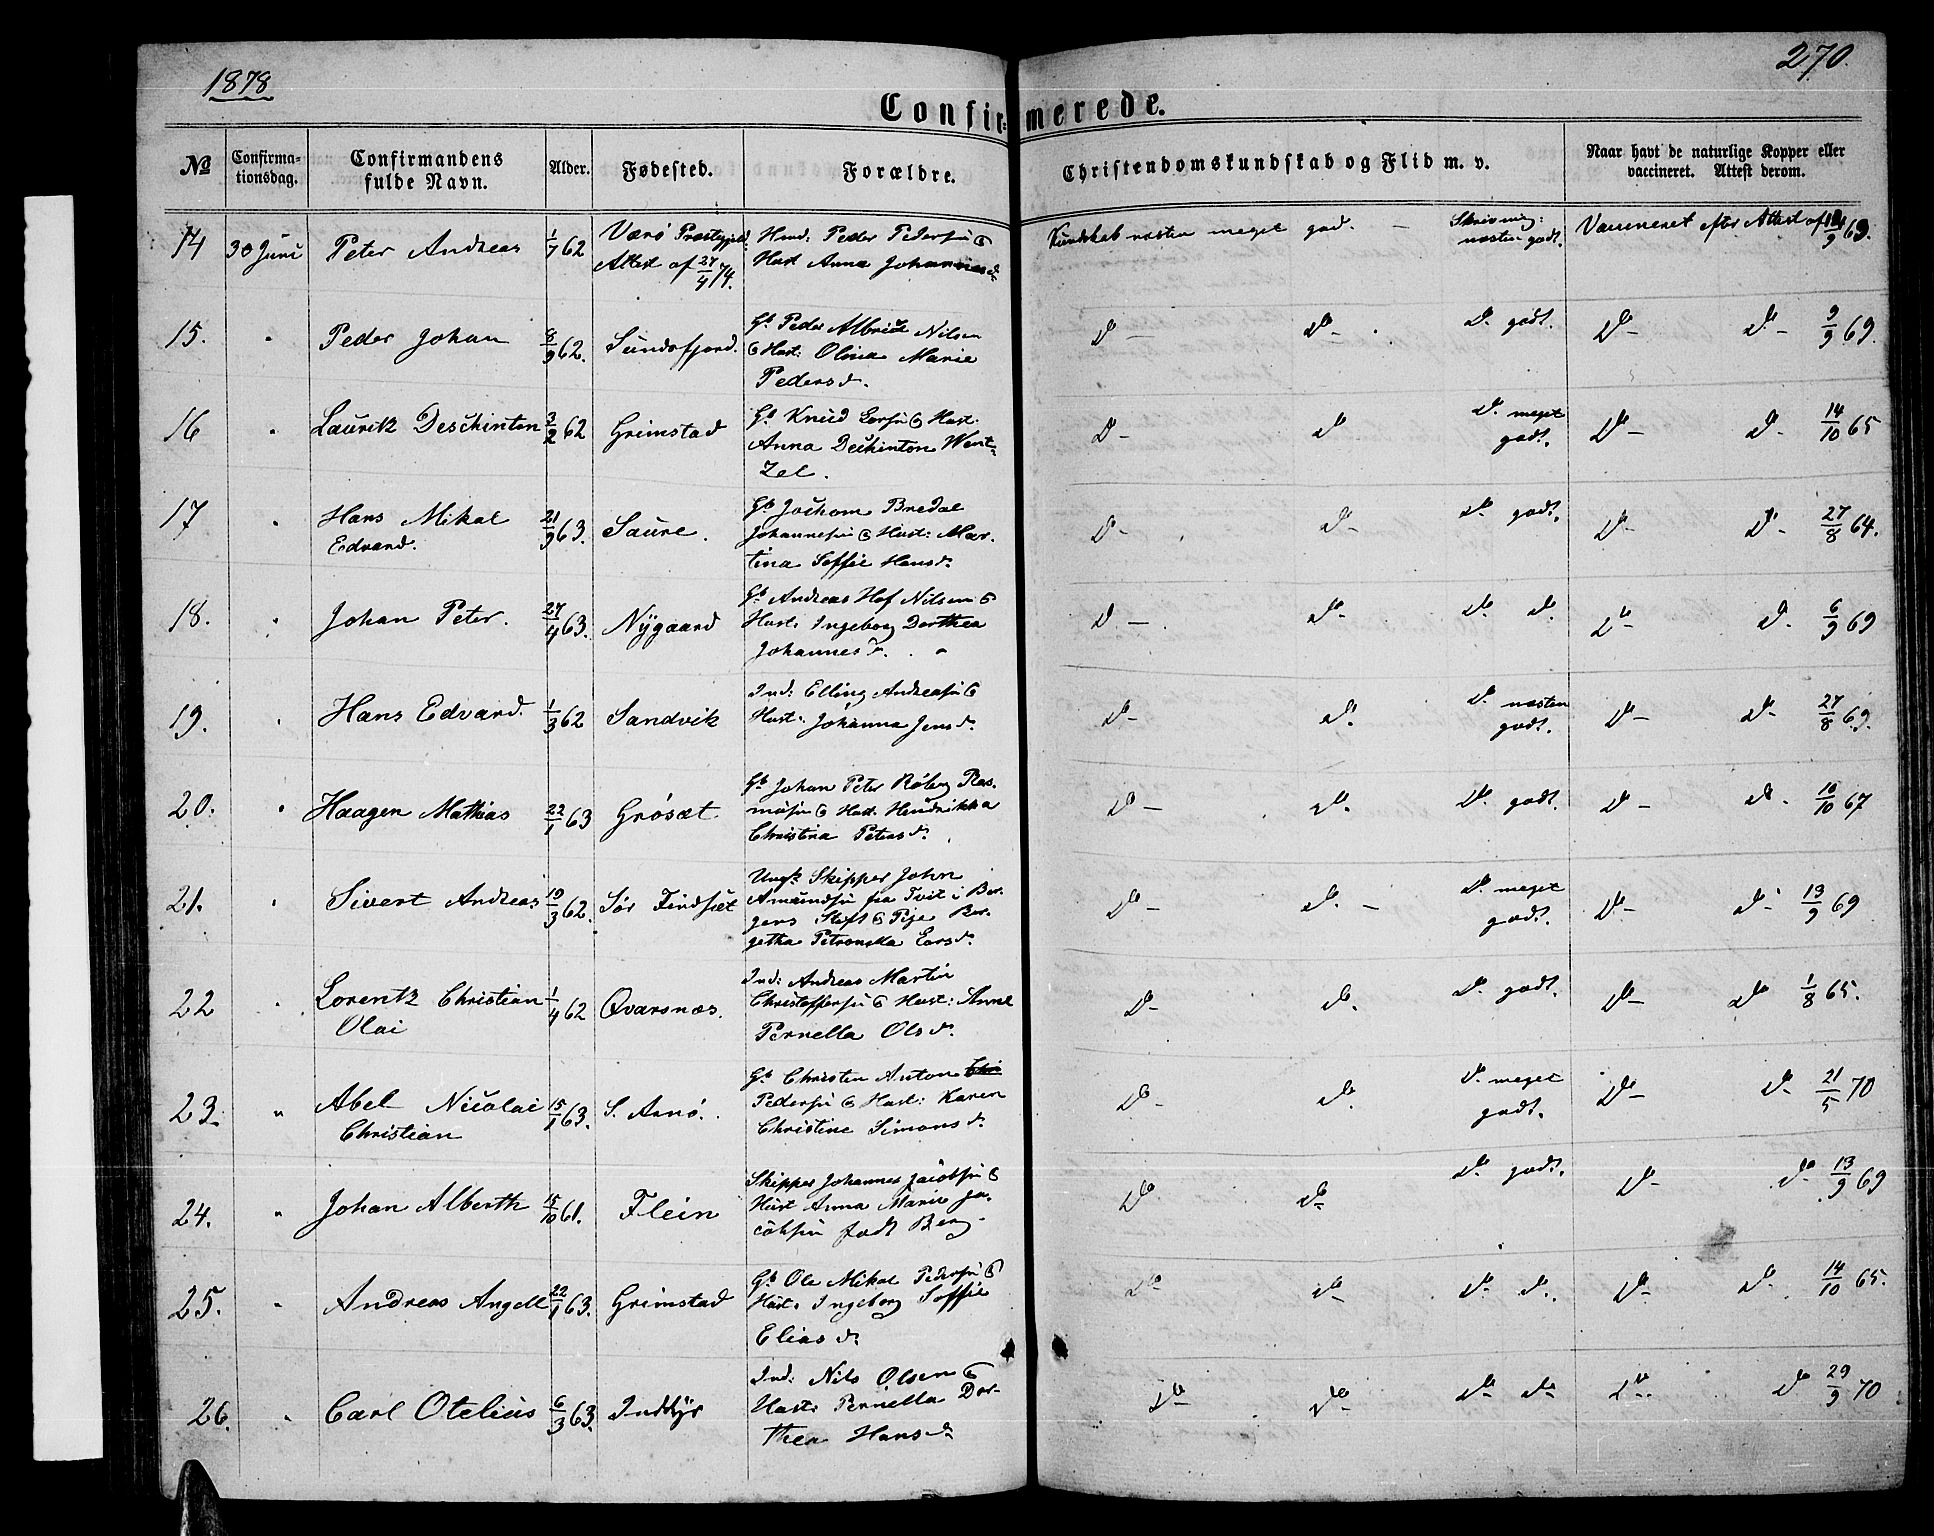 1878
270.
Confirmerede.
No
Confirmationsdag.
Confirmandens fulde Navn.
Alder.
Fødested.
Forældre.
Christendomskundskab og Flid m. v.
Naar havt de naturlige Kopper eller vaccineret. Attest derom.
14 30 Juni Peter Andreas 1/7 62 Værø Præstegjeld. Huusm: Peder Pedersen &
Attest af 27/4 74. Hust Anna Johannesd.
Kundskab næsten meget god. — Skrivning: næsten godt. Vaccineret efter Attest af 69.
15. " Peder Johan 8/9 62. Sundsfjord. Gb Peder Albrigt Nilsen
& Hust: Olina Marie
Pedersd.
Do — Do — Do godt. Do — Do — 9/9 69.
16 " Lauritz Deschinton 3/2 62 Grimstad Gb Knud Larsen & Hust.
Anna Dechinton Went-
zel.
Do — Do Do meget godt. Do — Do 14/10 65
17 " Hans Mikal 21/9 63. Saure. Gb Jochom Bredal
Edvard. Johannesen & Hust: Mar-
tina Soffie Hansd.
Do — Do — Do godt. Do — Do — 27/8 64.
18. " Johan Peter. 27/4 63. Nygaard Gb Andreas Hof Nilsen &
Hust. Ingeborg Dorthea
Johannesd.
Do — Do Do Do Do — Do 6/9 69
19. " Hans Edvard. 1/3 62 Sandvik Ind: Elling Andreasen &
Hust. Johanna Jensd.
Do — Do Do næsten godt. Do — Do — 27/8 69.
20. " Haagen Mathias 22/1 63 Grøsæt Gb Johan Peter Røberg Ras-
musen & Hust. Hendrikka
Christina Petersd.
Do — Do Do godt. Do — Do 10/10 67
21. " Sivert Andreas 19/3 62. Sør Findset Ungk. Skipper John
Amundsen fra Tveit i Ber-
gens Stift & Pige Ber-
getha Petronella Larsd.
Do — Do — Do meget godt. Do — Do — 13/9 69
22 " Lorentz Christian 1/4 62 Qvarsnæs. Ind: Andreas Martin
Olai Christoffersen & Hust: Anne
Pernella Olsd.
Do — Do Do godt. Do — Do 1/8 65.
23. " Abel Nicolai 15/1 63. S. Arnø. Gb Christen Anton
Christian Pedersen & Hust: Karen
Christine Simonsd.
Do — Do Do meget godt. Do — Do 21/5 70
24. " Johan Alberth 15/10 61. Flein Skipper Johannes Jacobsen &
Hust Anna Marie Ja-
cobsen født Berg.
Do Do Do godt. Do — Do 13/9 69
25. " Andreas Angell 22/1 63. Grimstad Gb Ole Mikal Pedersen &
Hust. Ingeborg Soffie
Eliasd.
Do Do Do Do Do — Do 14/10 65.
26. " Carl Otelius 6/3 63. Inddyr Ind: Nils Olsen &
Hustr Pernella Dor-
thea Hansd.
Do Do Do Do Do Do 29/9 70